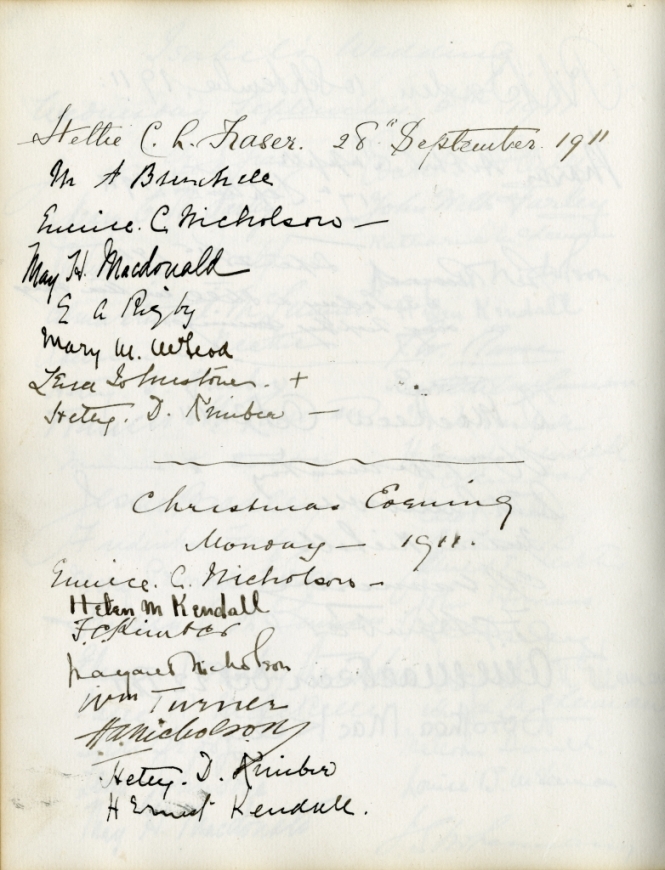 Hettie C. L. Fraser. 28th September. 1911
M A
Eunice. C. Nicholson —
May H. Macdonald
E A Rigby
Mary M. McLeod
Lena Johnstone. +
Hetty. D. Kimber —
Christmas Evening
Monday — 1911.
Eunice. C. Nicholson —
Helen M Kendall
F C Kimber
Margaret Nicholson
Wm Turner
H A Nicholson
Hetty. D. Kimber
H Ernest Kendall.